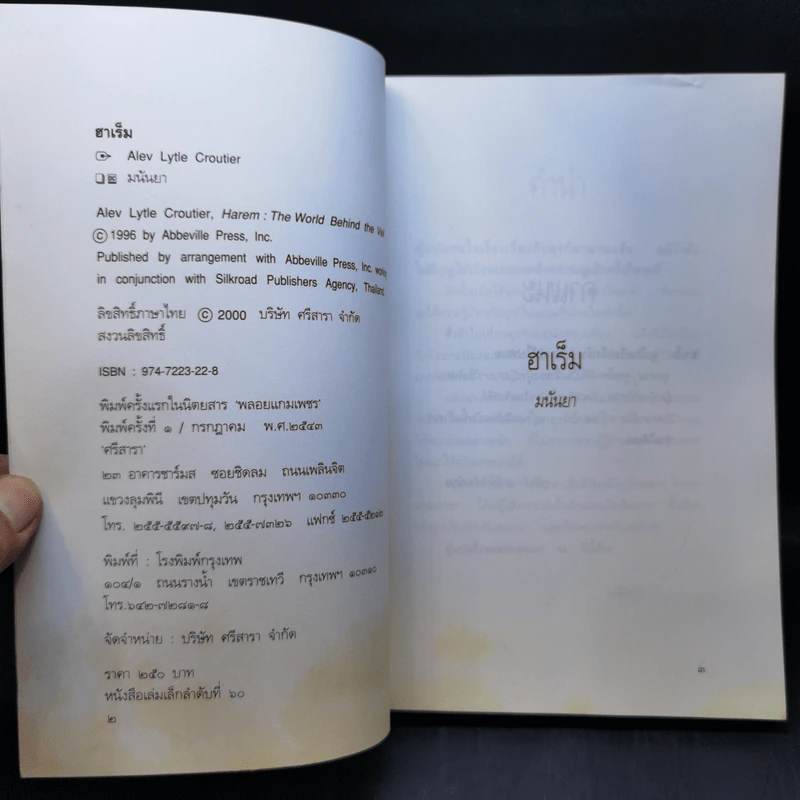 ฮาเร็ม
Alev Lytle Croutier
มนันยา
Alev Lytle Croutier, Harem : The World Behind the Veil
© 1996 by Abbeville Press, Inc.
Published by arrangement with Abbeville Press, Inc. working
in conjunction with Silkroad Publishers Agency, Thailand.
ลิขสิทธิ์ภาษาไทย © 2000 บริษัท ศรีสารา จำกัด
สงวนลิขสิทธิ์
ISBN : 974-7223-22-8
พิมพ์ครั้งแรกในนิตยสาร 'พลอยแกมเพชร'
พิมพ์ครั้งที่ ๑ / กรกฎาคม พ.ศ.๒๕๔๓
'ศรีสารา'
๒๓ อาคารชาร์มส ซอยชิดลม ถนนเพลินจิต
แขวงลุมพินี เขตปทุมวัน กรุงเทพฯ ๑๐๓๓๐
โทร. ๒๕๕-๕๕๙๗-๘, ๒๕๕-๗๓๒๖ แฟกซ์ ๒๕๕-๕๒๑๒
พิมพ์ที่ : โรงพิมพ์กรุงเทพ
๑๐๔/๑ ถนนรางน้ำ เขตราชเทวี กรุงเทพฯ ๑๐๓๑๐
โทร.๖๔๒-๗๒๘๑-๘
จัดจำหน่าย : บริษัท ศรีสารา จำกัด
ราคา ๒๕๐ บาท
หนังสือเล่มเล็กลำดับที่ ๖๐
๒
ฮาเร็ม
มนันยา
๓